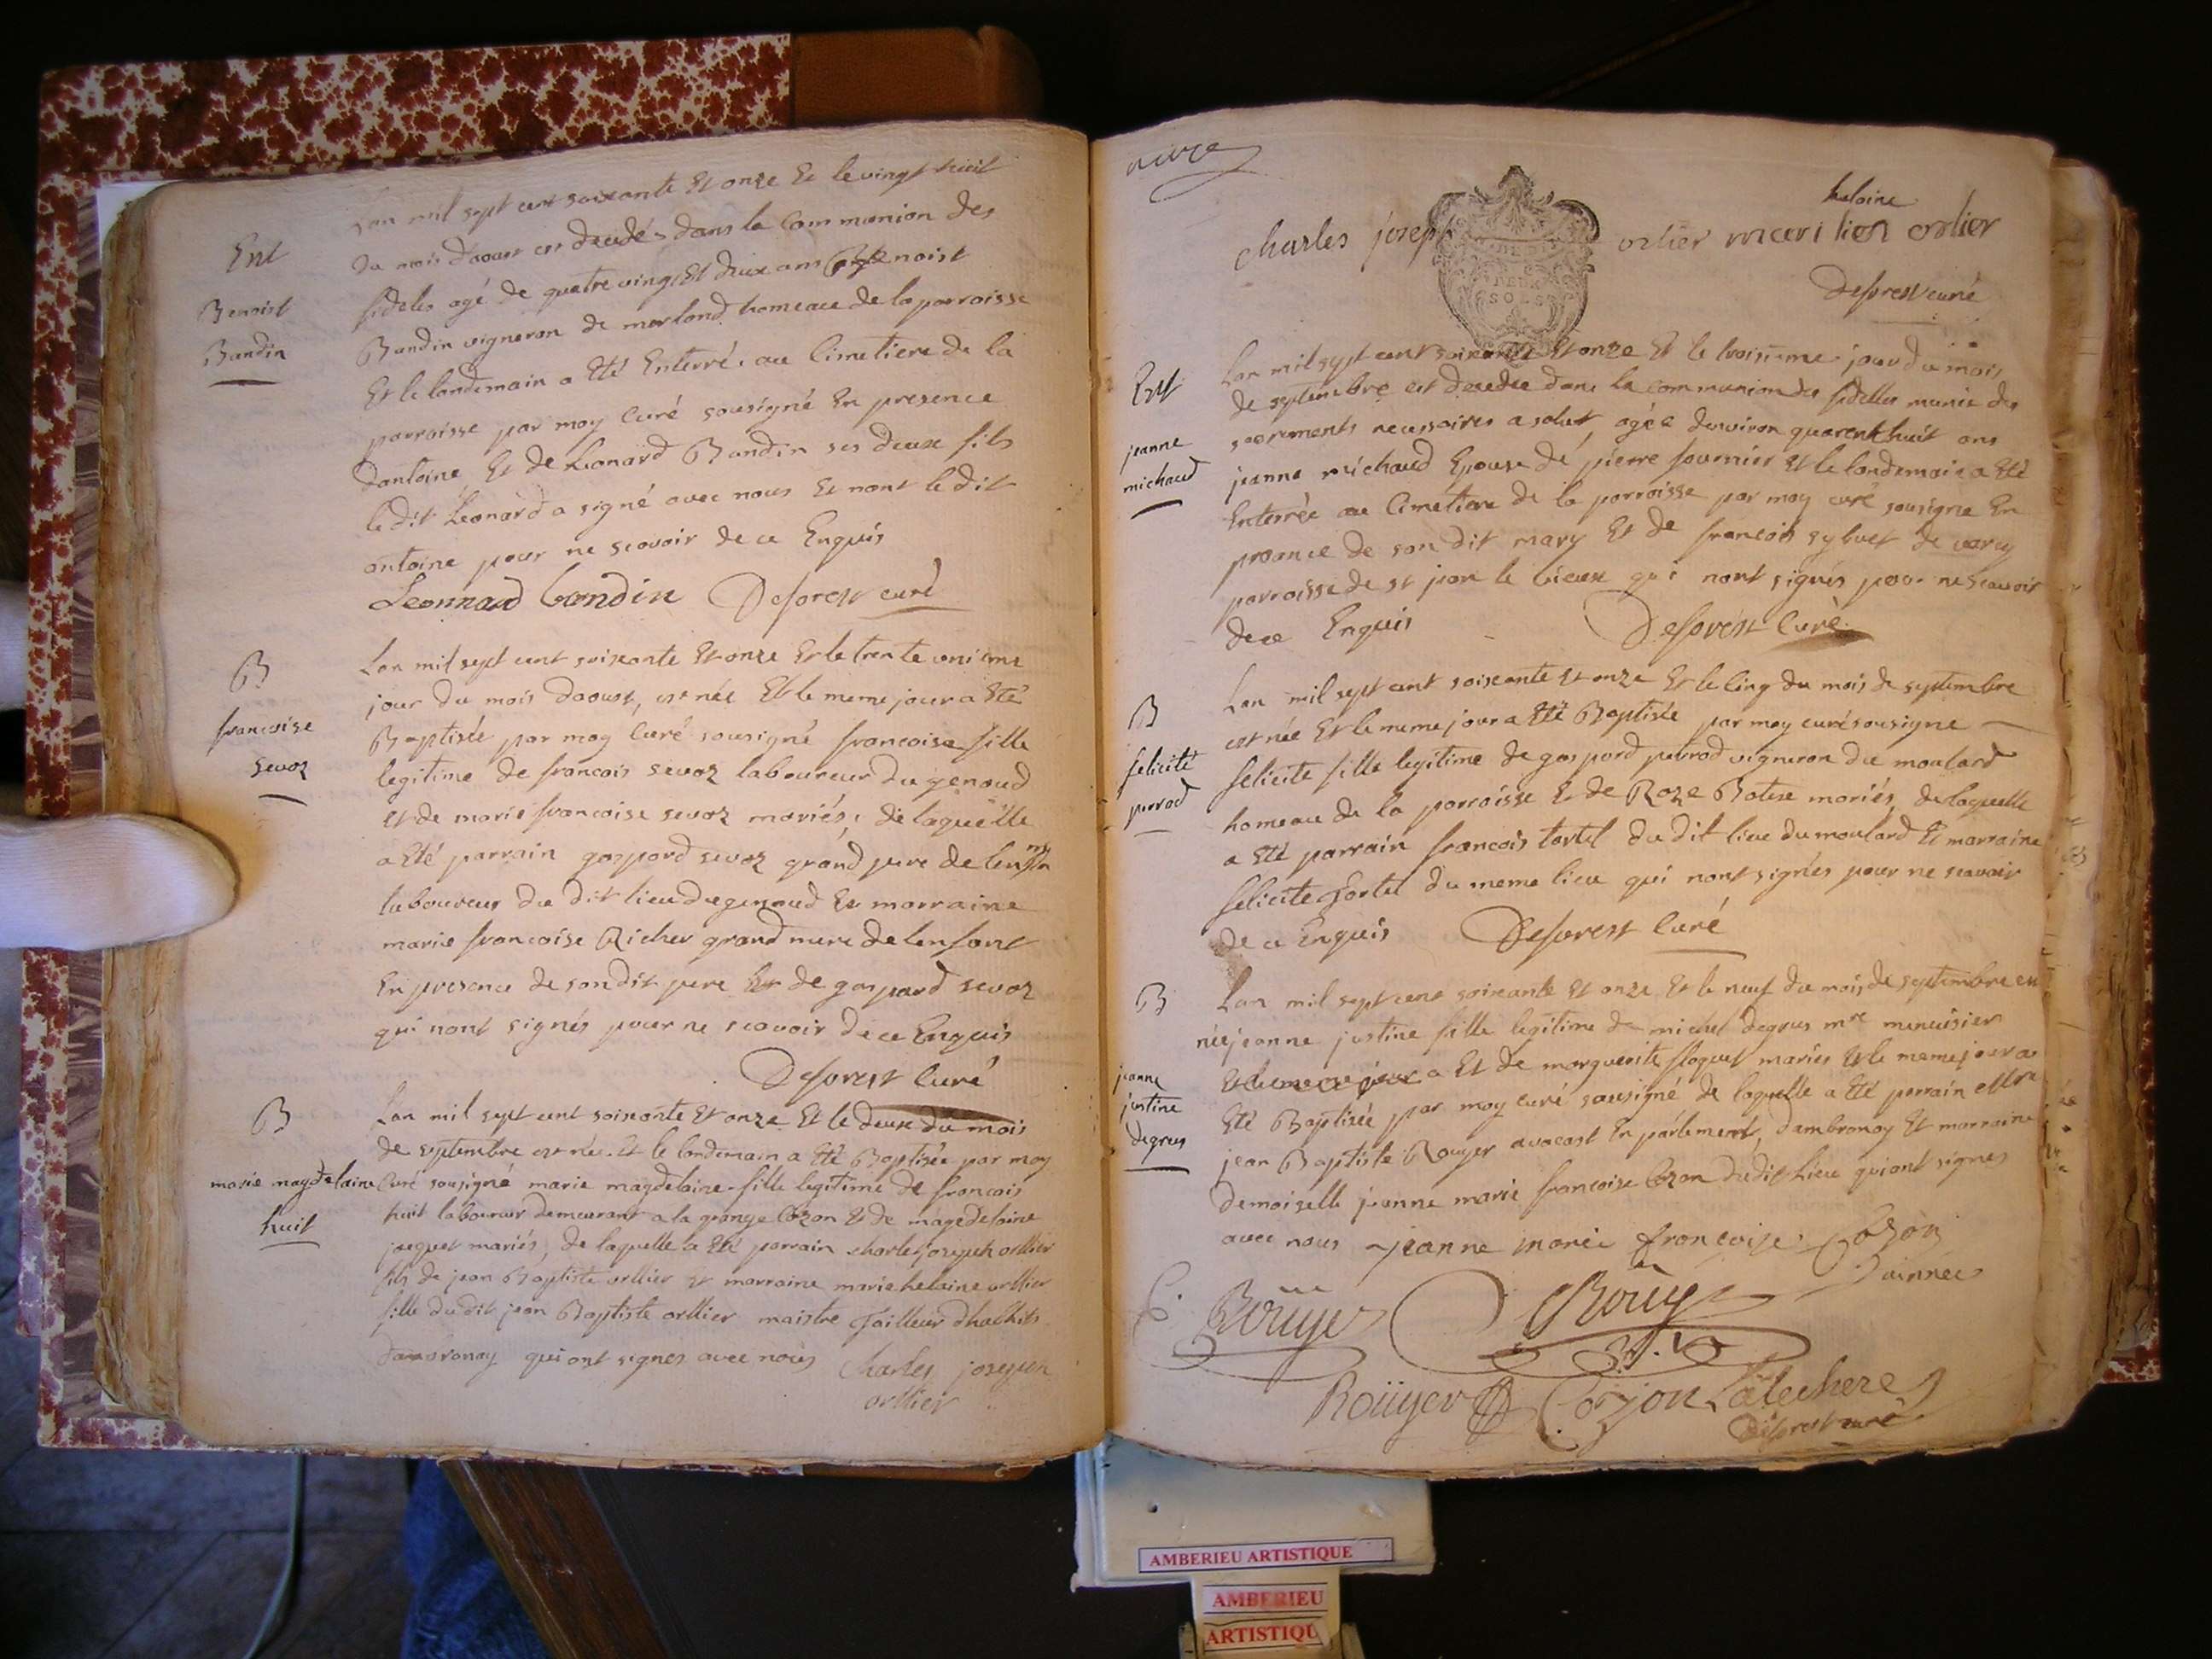 Lan mil sept cent soixante Et onze Et le vingt huit
Ent
du mois daoust est decedé dans la Communion des
fideles agé de quatre vingt Et deux ans Benoist
Benoist
Bandin
Bandin vigneron de merland hameau de la parroisse
Et le landemain a Eté Enterré au Cimetiere de la
parroisse par moy Curé sousigné En presence
dantoine Et de Leonard Bandin ses deux fils
le dit Leonard a signé avec nous Et nont le dit
antoine pour ne scavoir de ce Enquis
Leonnard bandin Deforest curé
B
francoise
sevoz
Lan mil sept cent soixante Et onze Et le trente unieme
jour du mois daoust, est née Et le meme jour a Eté
Baptisée par moy Curé sousigné francoise fille
legitime de francois sevoz laboureur du genoud
et de marie francoise sevoz mariés, de laquelle
a Eté parrain gaspard sevoz grand pere de lenfan
laboureur du dit lieu du genoud Et marraine
marie francoise Richer grand mere de lenfant
En presence de son dit pere Et de gaspard sevoz
qui nont signés pour ne scavoir de ce Enquis
Deforest Curé
B
marie magdelaine
huit
Lan mil sept cent soixante Et onze Et le deux du mois
de septembre est née Et le landemain a Eté Baptisée par moy
Curé sousigné marie magdelaine fille legitime de francois
huit laboureur demeurant a la grange Cozon Et de magdelaine
jacquet mariés, de laquelle a Eté parrain charle joseph orllier
fils de jean Baptiste orllier et marraine marie helaine orllier
fille du dit jean Baptiste orllier maistre Tailleur dhabits
dambronay qui ont signes avec nous Charles joseph
orllier
helaine
charles joseph orlier mari lion orlier
DEUX
SOLS
Deforest curé
Ent
jeanne
michaud
Lan mil sept cent soixante Et onze Et le troisieme jour du mois
de septembre est decedee dans la communion des fidelles munie des
sacrements necessaires a salut, agée denviron quarent huit ans
jeanne michaud Epouse de pierre fournier Et le landemain a Eté
Enterrée au Cimetiere de la parroisse par moy curé sousigne En
presance de son dit mary Et de francois sylvet de varey
parroisse de st jean le vieux qui nont signés pour ne scavoir
de ce Enquis Deforest Curé
B
felicité
perrod
Lan mil sept cent soixante et onze Et le Cinq du mois de septembre
est née Et le meme jour a Eté Baptisée par moy curé sousigne
felicite fille legitime de gaspard perrod vigneron du moulard
hameau de la parroisse Et de Roze mariés, de laquelle
a Eté parrain francois tortel du dit lieu du moulard Et marraine
felicite Tortel du meme lieu qui nont signés pour ne scavoir
de ce Enquis Deforest Curé
B
jeanne
justine
degrus
Lan mil sept cent soixante Et onze Et le neuf du mois de septembre est
née jeanne justine fille legitime de michel degrus mre menuisier
Et le meme jour a Et de marguerite floquet mariés Et le meme jour a
Eté Baptisée par moy curé sousigné de laquelle a Eté parrain Mre
jean Baptiste Rouyer avocast En parlement, dambronay Et marraine
demoiselle jeanne marie francoise Cozon du dit lieu qui ont signes
avec nous jeanne marie françoise Cozon
lainnée
Roüyer
Roüyer
Roüyer Cozon Latechere
Deforest curé
AMBERIEU ARTISTIQUE
AMBERIEU
ARTISTIQU